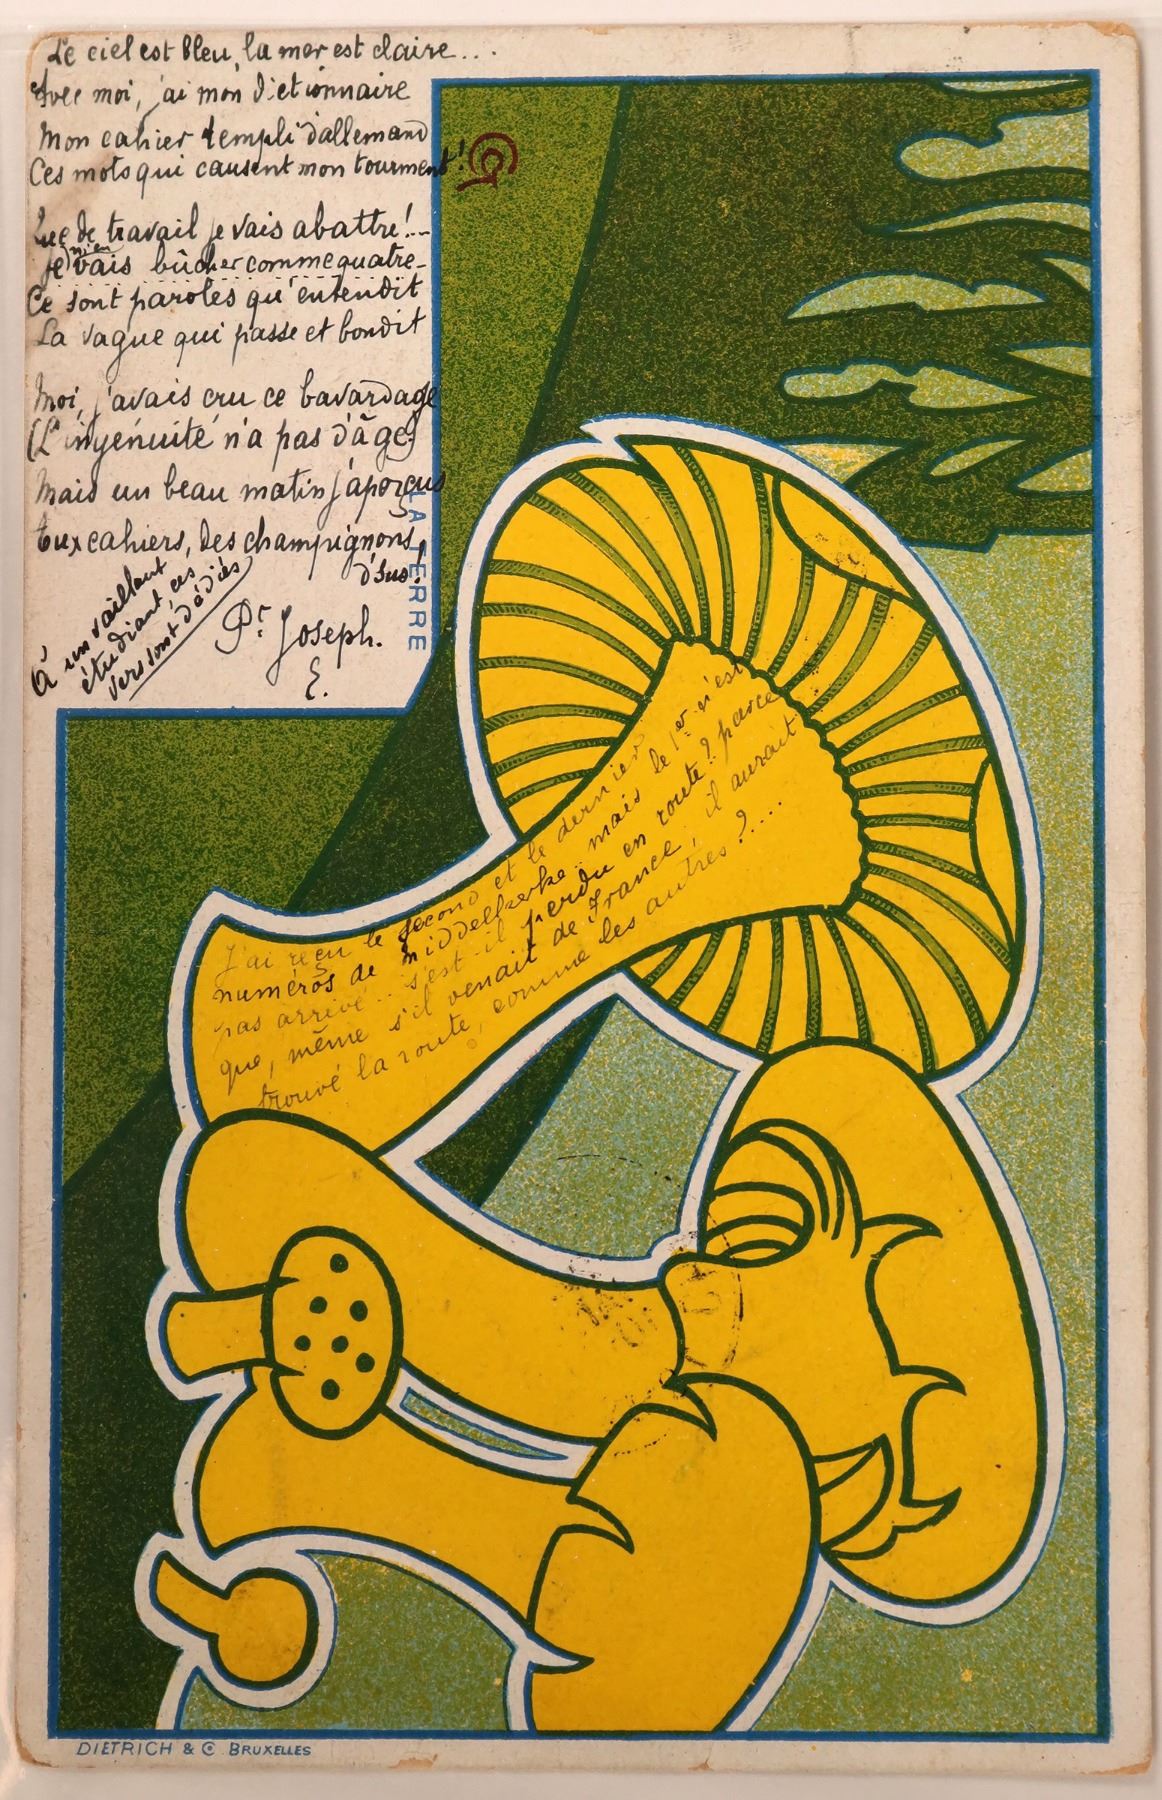 Le ciel est bleu, la mer est claire...
Avec moi, j'ai mon dictionnaire
Mon cahier rempli d'allemand
Ces mots qui causent mon tourment!
Que de travail je vais abattre!..
Je vais bien bûcher comme quatre..
Ce sont paroles qu'entendit
La vague qui passe et bondit
Moi, j'avais cru ce bavardage
(L'ingénuité n'a pas d'âge)
Mais un beau matin j'aperçus
Aux cahiers, des champignons
d'sus!
À un vaillant
étudiant, ces
vers sont dédiés
Dr Joseph.
E.
LA TERRE
J'ai reçu le second et le dernier
numéros de Middelkerke.. mais le 1er n'est
pas arrivé.. s'est-il perdu en route? parce
que, même s'il venait de France, il aurait
trouvé la route, comme les autres?...
DIETRICH & Co BRUXELLES